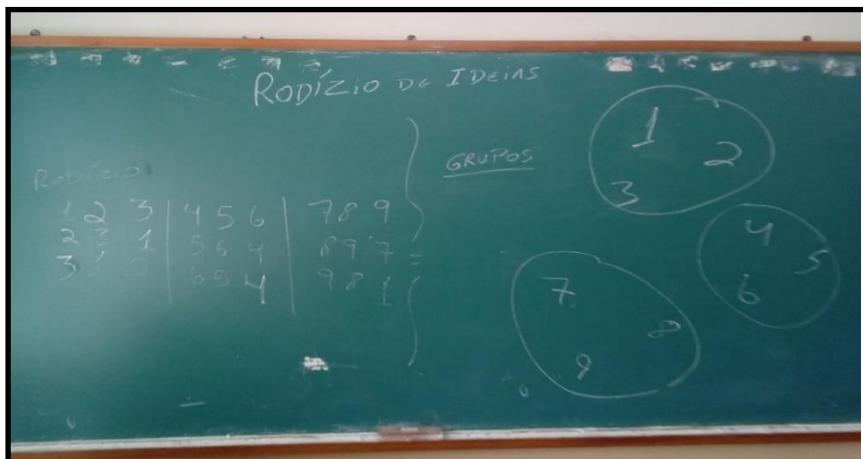 RODÍZIO DE IDEIAS
RODÍZIO
1 2 3 | 4 5 6 | 7 8 9
2 3 1 | 5 6 4 | 8 9 7
3 | 6 5 4 | 9 8
GRUPOS
1
2
3
4
5
6
7
8
9